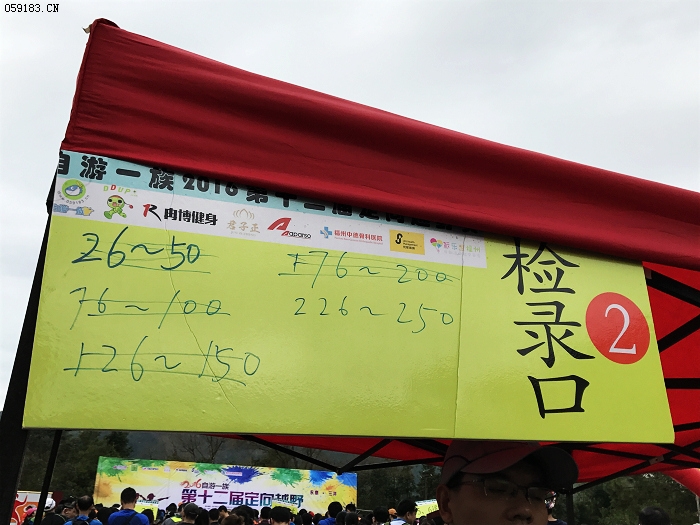 059183.CN
自游一族2016第十二届定向
DDUP
冉博健身
君子正
Aaparso
福州中德骨科医院
26~50
76~100
126~150
176~200
226~250
检录口
2
2016自游一族
第十二届定向越野